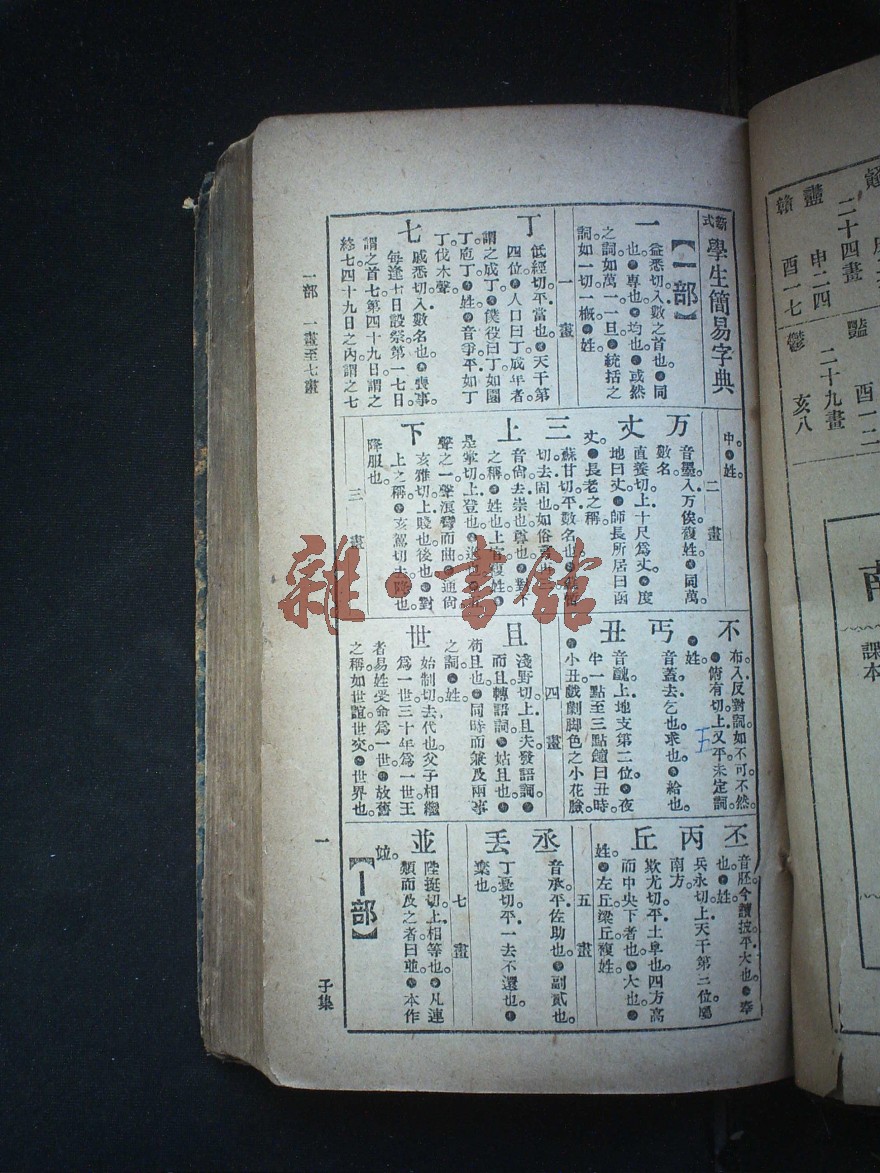 新式學生簡易字典
【一部】
一
益悉切入數之首也。同
也。專也。均也。或然
之詞如萬一一旦。統括之
詞如一切一槪。姓
一畫
丁
低經切平當也。天干第
四位。人口曰丁成年者
謂之成丁。僕役曰丁如園
丁庖丁。姓。音爭平如丁
丁伐木聲。
七
戚悉切入數名也。喪事
每逢七日設祭第一七日
謂之首七第四十九日謂之
終七四十九日之內謂之七
中。姓。
二畫
万
音墨入万俟複姓。同萬
數名。
丈
直養切上十尺爲丈。度
地曰丈。師長所居曰函
丈。長老之稱。
三
蘇甘切平數名也。
切去
上
音尙去崇也尊也。對下
之稱。姓也上官複姓。
是掌切上登也。
聲之一聲浪彎而曲。通尙
下
亥雅切上賤也後也。對
上之稱。亥駕切去降也。
降服也。
三畫
不
布入反對詞如不可不然。
俯有切上又平未定詞。
姓。
丐
音蓋去乞也求也。給也。
丑
音醜上地支第二位。夜
半一點至三點鐘曰丑時。
小丑戲劇脚色之小花臉。
四畫
且
淺野切上且夫發語詞。
而且轉語詞。姑且也。
苟且也。同時而兼及兩事
之詞。姓。
世
始制切去代也。父子相繼
爲一世三十年爲一世王
者易姓受命爲一世。故舊
之稱如世誼世交。世界也。
丕
音胚今讀披平大也。奉
也。姓。
丙
兵永切上天干第三位屬
南方。
丘
欺尤切平土阜也。四方高
而中央下者也。大也。
姓。左丘梁丘複姓。
五畫
丞
音承平佐助也。副貳也。
丟
丁憂切平一去不還也。
棄也。
七畫
並
陸挺切上相等也。凡連
類而及之者曰並。本作
竝。
【丨部】
一部 一畫至七畫
一
子集
雜·書舘
二十四畫
申二四
酉一七
二十九畫
鬱
亥八
豔
酉一二
課本